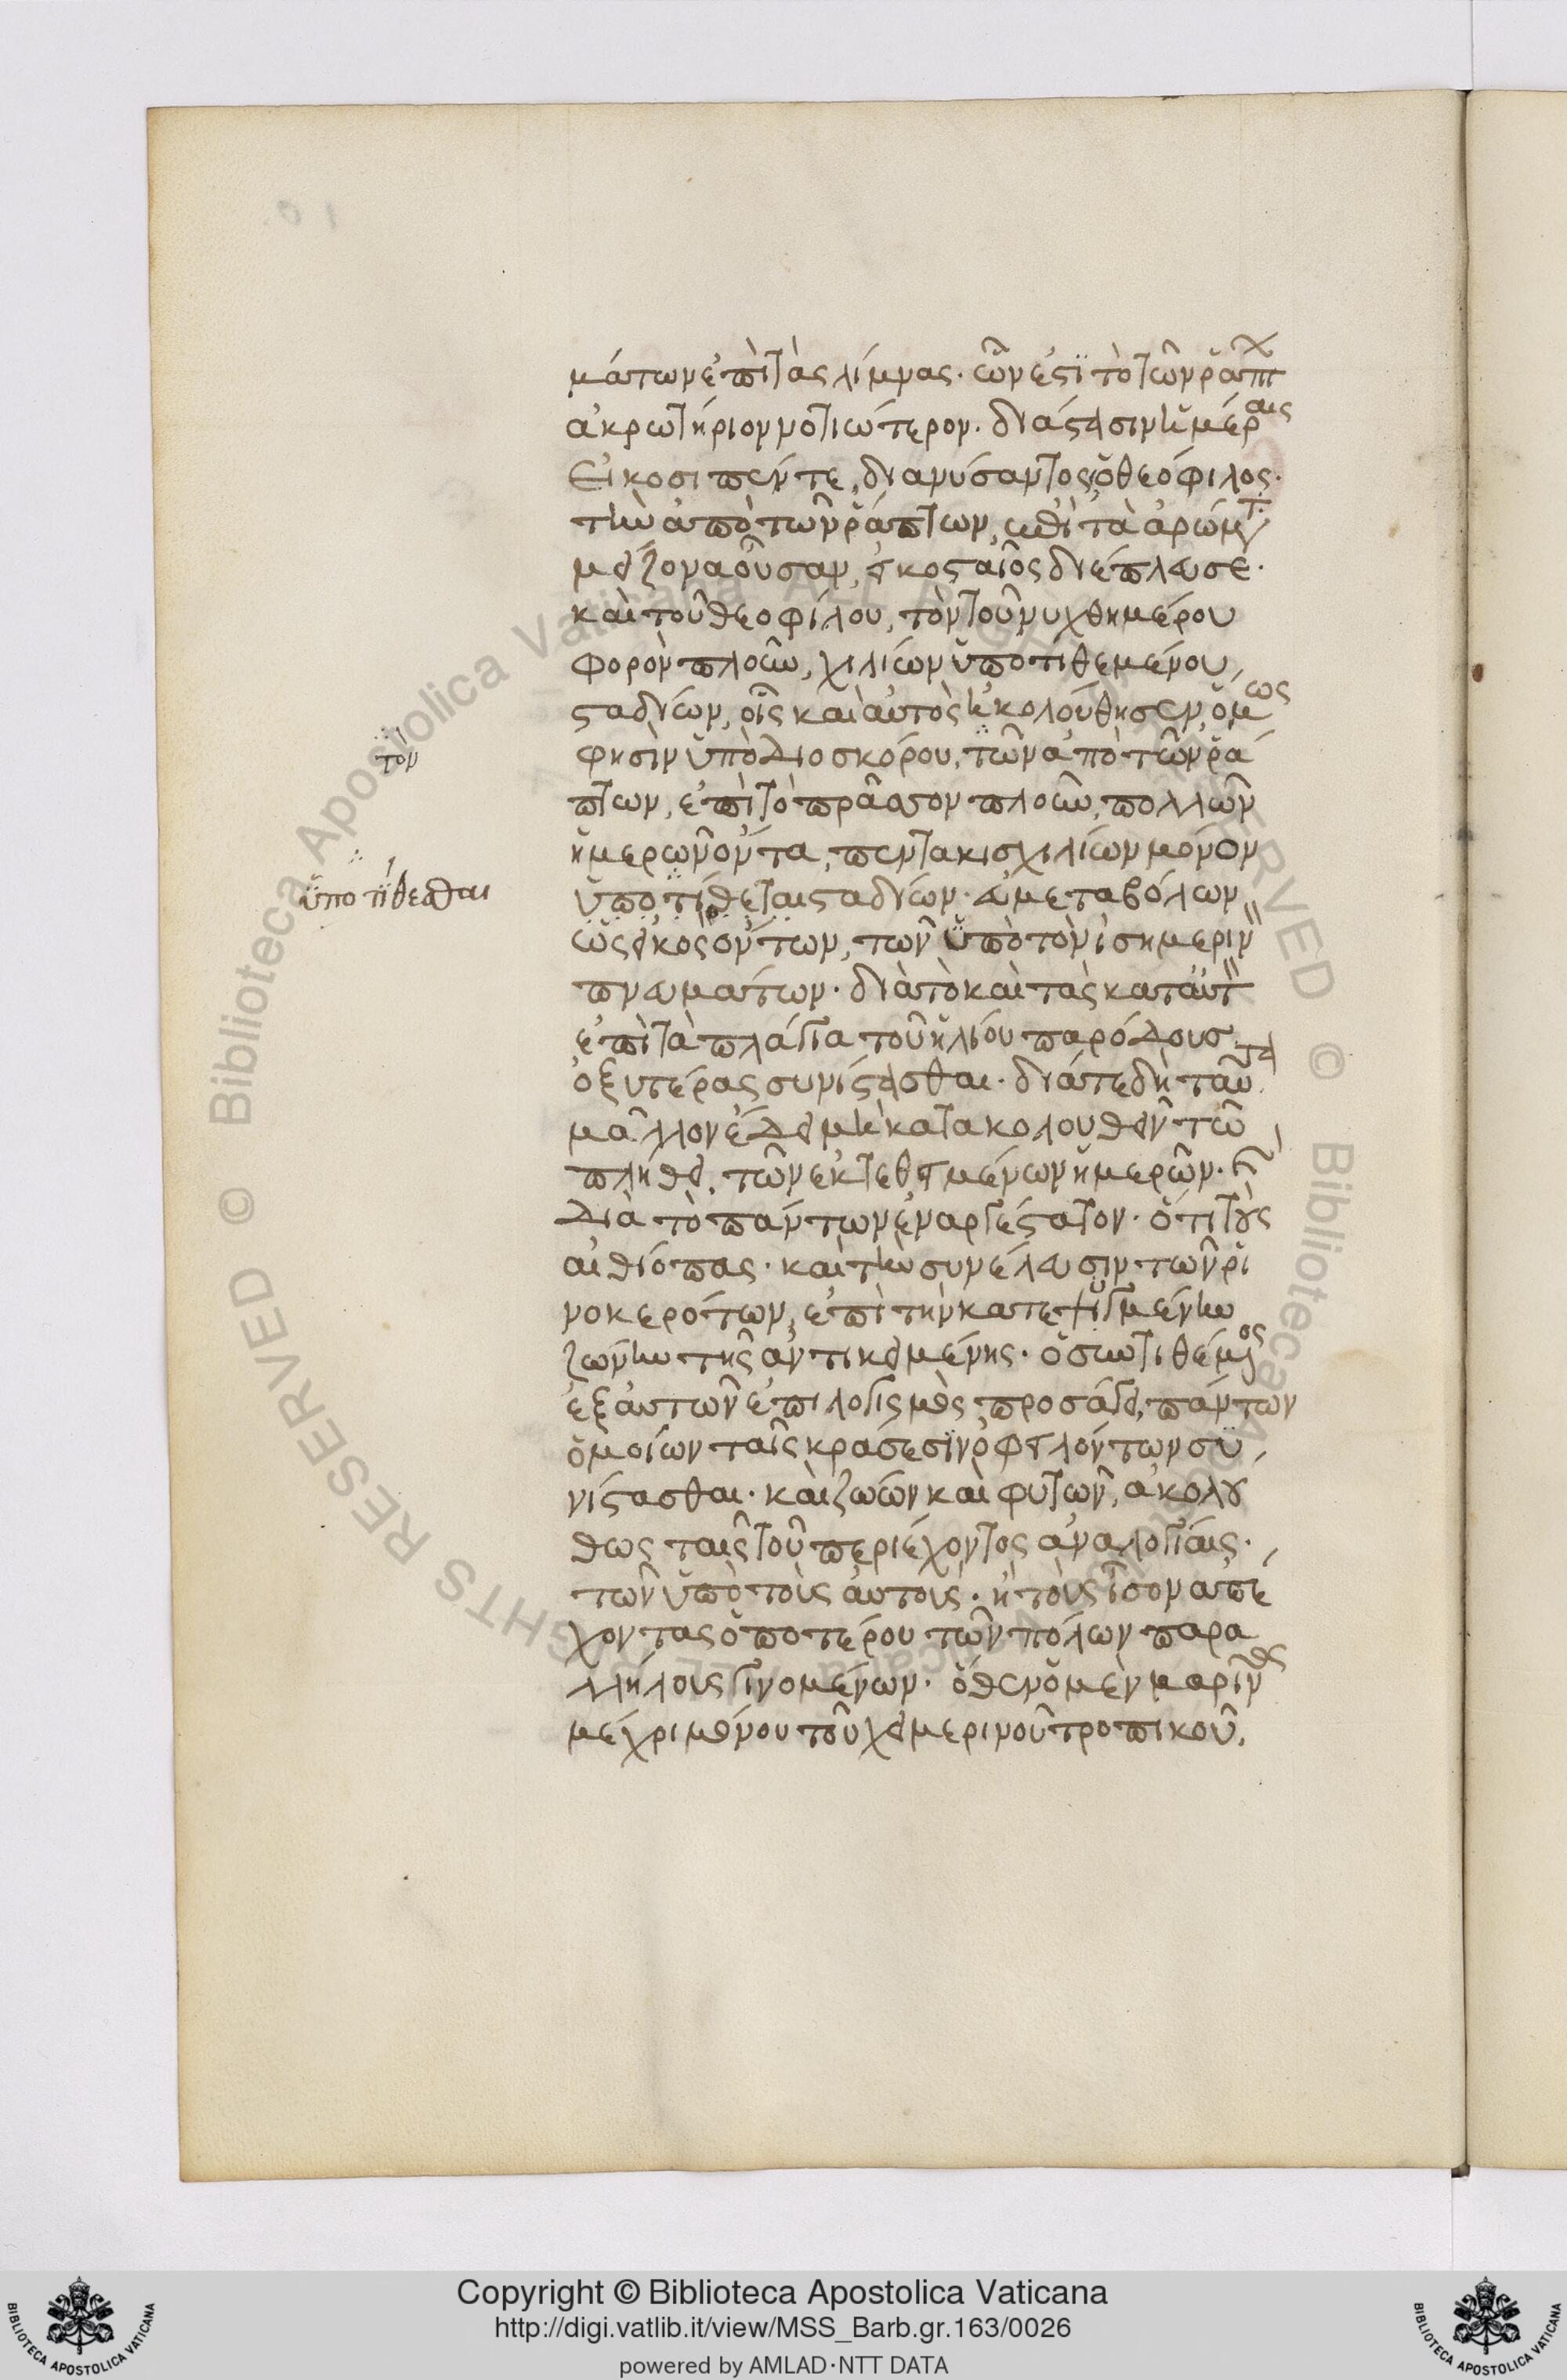 μάτων ἐπὶ τὰς λίμνας· ὧν ἐστὶ τὸ τῶν ῥάπτ
ἀκρωτήριον νοτιώτερον. διάστασιν ἡμέραις
εἴκοσι πέντε, διανύσαντος, ὁ θεόφιλος·
τὴν ἀπὸ τῶν ῥάπτων, ἐπὶ τὰ ἀρώματ
μείζονα οὖσαν, εἴκοσταῖος διέπλευσε.
καὶ τοῦ θεοφίλου, τὸν τοῦ νυχθημέρου
φορὸν πλοῦν, χιλίων ὑποτιθεμένου,
σταδίων, οἷς καὶ αὐτὸς ἠκολούθησεν, ὅμως
φησὶν ὑπὸ Διοσκόρου, τῶν ἀπὸ τῶν ῥά
τὸν
πτων, ἐπὶ τὸ πρᾶσον πλοῦν, πολλῶν
ἡμερῶν ὄντα, πεντακισχιλίων μόνον
ὑποτίθεσθαι
ὑποτίθεται σταδίων· εὐμεταβόλων
ὡς εἰκὸς ὄντων, τῶν ὑπὸ τὸν ἰσημεριν
πνευμάτων· διὰ τὸ καὶ τὰς κατ' αὐτ
ἐπὶ τὰ πλάγια τοῦ ἡλίου παρόδους
ὀξυτέρας συνίστασθαι. διά τε δὴ ταῦτα
μᾶλλον ἔδει μὴ κατακολουθεῖν τῶ
πλήθει, τῶν ἐκτεθειμένων ἡμερῶν. καὶ
Διὰ τὸ πάντων ἐναργέστατον· ὅτι τοὺς
αἰθίοπας· καὶ τὴν συνέλευσιν τῶν ῥι
νοκερότων, ἐπὶ τὴν κατεψυγμένην
ζώνην τῆς ἀντικειμένης· ὃ συντιθέμενος
ἐξ αὐτῶν ἐπιλογισμὸς προσάγει, πάντων
ὁμοίων ταῖς κράσεσιν ὀφειλόντων συ
νίστασθαι· καὶ ζώων καὶ φυτῶν, ἀκολού
θως ταῖς τοῦ περιέχοντος ἀναλογίαις·
τῶν ὑπὸ τοὺς αὐτούς· ἢ τοὺς ἴσον ἀπέ
χοντας ὁποτέρου τῶν πόλων παρα
λλήλους γινομένων· ὅθεν ὁ μὲν μαρῖνος
μέχρι μόνου τοῦ χειμερινοῦ τροπικοῦ,
Copyright © Biblioteca Apostolica Vaticana
http://digi.vatlib.it/view/MSS_Barb.gr.163/0026
powered by AMLAD·NTT DATA